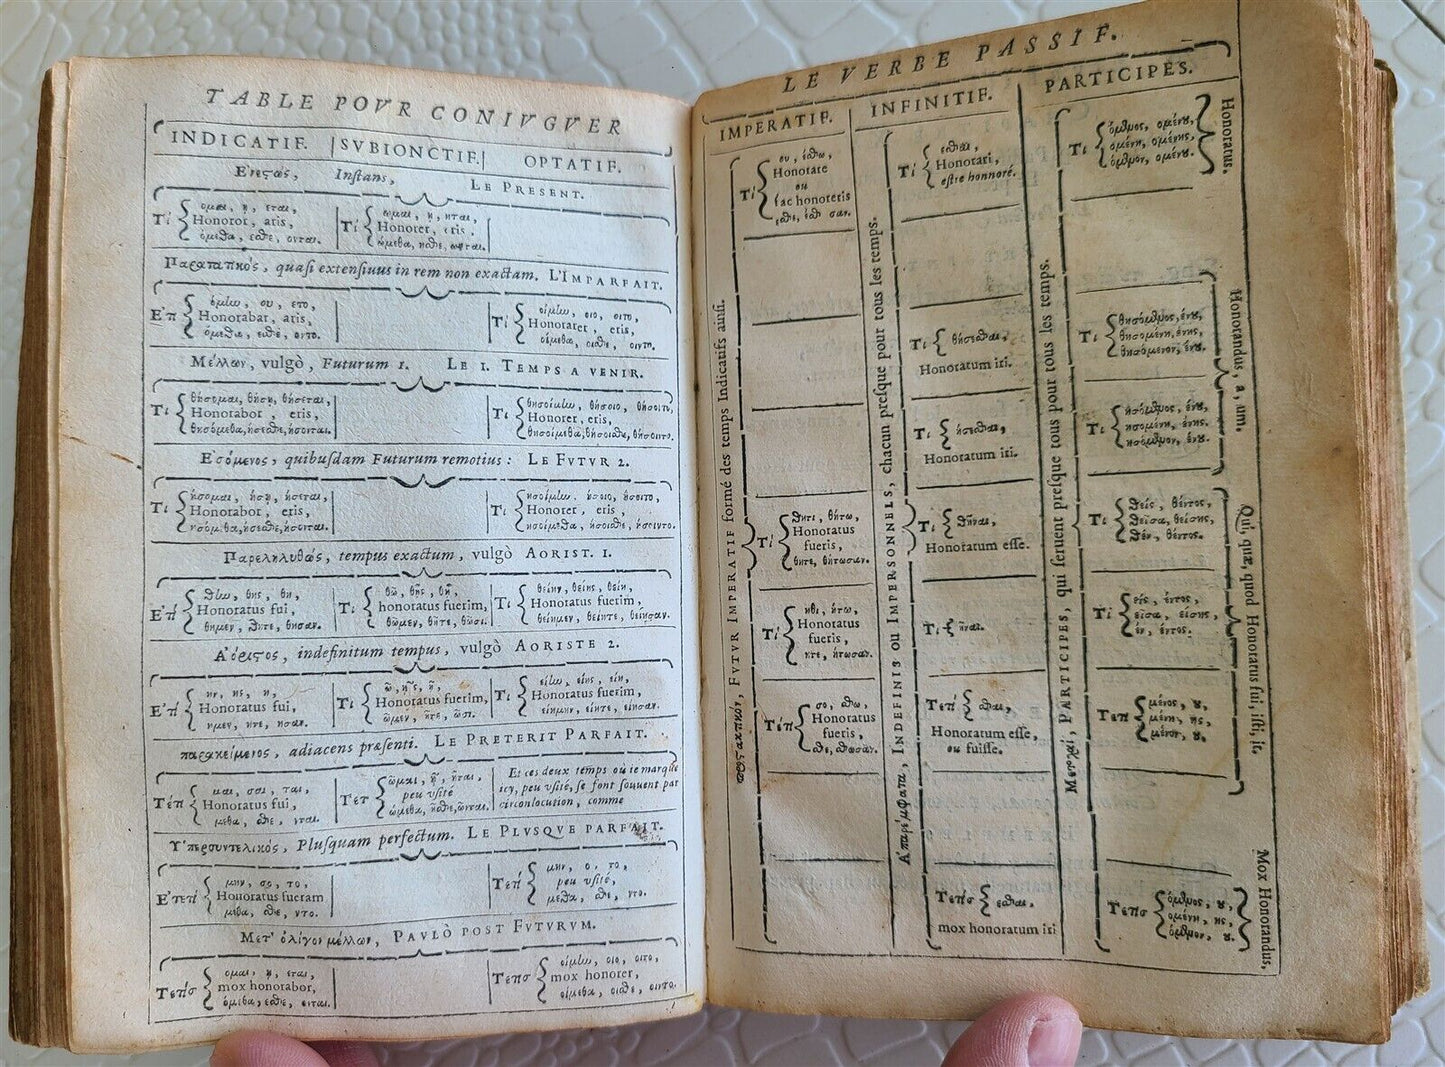 TABLE POVR CONIVGVER
INDICATIF. SVBIONCTIF. OPTATIF.
Ενεςώς, Inſtans, LE PRESENT.
Τί ομαι, ῃ, εται,
Honoror, aris,
όμεθα, εσθε, ονται.
Τί ωμαι, ῃ, ηται,
Honorer, eris,
ώμεθα, ησθε, ωνται.
Παρατατικός, quaſi extenſiuus in rem non exactam. L'IMPARFAIT.
Ε'π όμΙω, ου, ετο,
Honorabar, aris,
όμεθα, εσθε, οντο.
Τί οίμΙω, οιο, οιτο,
Honorarer, eris,
οίμεθα, οισθε, οιντο.
Μέλλων, vulgò, Futurum 1. LE 1. TEMPS A VENIR.
Τί θήσομαι, θήσῃ, θήσεται,
Honorabor, eris,
θησόμεθα, ήσεσθε, ήσονται.
Τί θησοίμΙω, θήσοιο, θήσοιτο,
Honorer, eris,
θησοίμεθα, θήσοισθε, θήσοιντο.
Εσόμενος, quibuſdam Futurum remotius: LE FVTVR 2.
Τί ήσομαι, ήσῃ, ήσεται,
Honorabor, eris,
ησόμεθα, ήσεσθε, ήσονται.
Τί ησοίμΙω, ήσοιο, ήσοιτο,
Honorer, eris,
ησοίμεθα, ήσοισθε, ήσοιντο.
Παρεληλυθώς, tempus exactum, vulgò AORIST. 1.
Ε'τί θΙω, θης, θη,
Honoratus fui,
θημεν, θητε, θησαν.
Τί θῶ, θῇς, θῇ,
honoratus fuerim,
θῶμεν, θῆτε, θῶσι.
Τί θείην, θείης, θείη,
Honoratus fuerim,
θείημεν, θείητε, θείησαν.
Α'όριςος, indefinitum tempus, vulgò AORISTE 2.
Ε'τί ην, ης, η,
Honoratus fui,
ημεν, ητε, ησαν.
Τί ῶ, ῇς, ῇ,
Honoratus fuerim,
ῶμεν, ῆτε, ῶσι.
Τί είΙω, είης, είη,
Honoratus fuerim,
είημεν, είητε, είησαν.
παρακείμενος, adiacens præſenti. LE PRETERIT PARFAIT.
Τέτί μαι, σαι, ται,
Honoratus fui,
μεθα, σθε, νται.
Τετ ῶμαι, ῇ, ῆται,
peu vſité
ώμεθα, ῆσθε, ῶνται.
Et ces deux temps où ie marque
icy, peu vſité, ſe font ſouuent par
circonlocution, comme
Υ'περσυντελικός, Pluſquam perfectum. LE PLVSQVE PARFAIT.
Ε'τετί μην, σο, το,
Honoratus fueram
μεθα, σθε, ντο.
Τετί μην, ο, το,
peu vſité,
μεθα, σθε, ντο.
Μετ' ὀλίγον μέλλων, PAVLÒ POST FVTVRVM.
Τετίσ ομαι, ῃ, εται,
mox honorabor,
όμεθα, εσθε, ονται.
Τετίσ οίμΙω, οιο, οιτο,
mox honorer,
οίμεθα, οισθε, οιντο.
LE VERBE PASSIF.
IMPERATIF. INFINITIF. PARTICIPES.
Προςακτικόν, FVTVR IMPERATIF formé des temps Indicatifs auſſi.
Τί ου, έσθω,
Honorare
ou
fac honoreris
εσθε, έσθωσαν.
Τί θητι, θήτω,
Honoratus
fueris,
θητε, θήτωσαν.
Τί ηθι, ήτω,
Honoratus
fueris,
ητε, ήτωσαν.
Τέτί σο, σθω,
Honoratus
fueris,
σθε, σθωσαν.
Α'παρέμφατα, INDEFINIS ou IMPERSONNELS, chacun preſque pour tous les temps.
Τί εσθαι,
Honorari,
eſtre honnoré.
Τί θήσεσθαι,
Honoratum iri.
Τί ήσεσθαι,
Honoratum iri.
Τί θῆναι,
Honoratum eſſe.
Τί ῆναι.
Τετί σθαι,
Honoratum eſſe,
ou fuiſſe.
Τετίσ εσθαι,
mox honoratum iri
Μετοχαί, PARTICIPES, qui ſeruent preſque tous pour tous les temps.
Τι όμενος, ομένου,
ομένη, ομένης,
όμενον, ομένου.
Honoratus.
Τι θησόμενος, ένου,
θησομένη, ένης,
θησόμενον, ένου.
Τι ησόμενος, ένου,
ησομένη, ένης.
ησόμενον, ένου.
Honorandus, a, um.
Τι θείς, θέντος,
θεῖσα, θείσης,
θέν, θέντος.
Τι είς, έντος,
εῖσα, είσης,
έν, έντος.
Τετί μένος, ου,
μένη, ης,
μένον, ου.
Qui, quæ, quod Honoratus fui, iſti, it.
Τετίσ όμενος, ου,
ομένη, ης,
όμενον, ου.
Mox Honorandus,